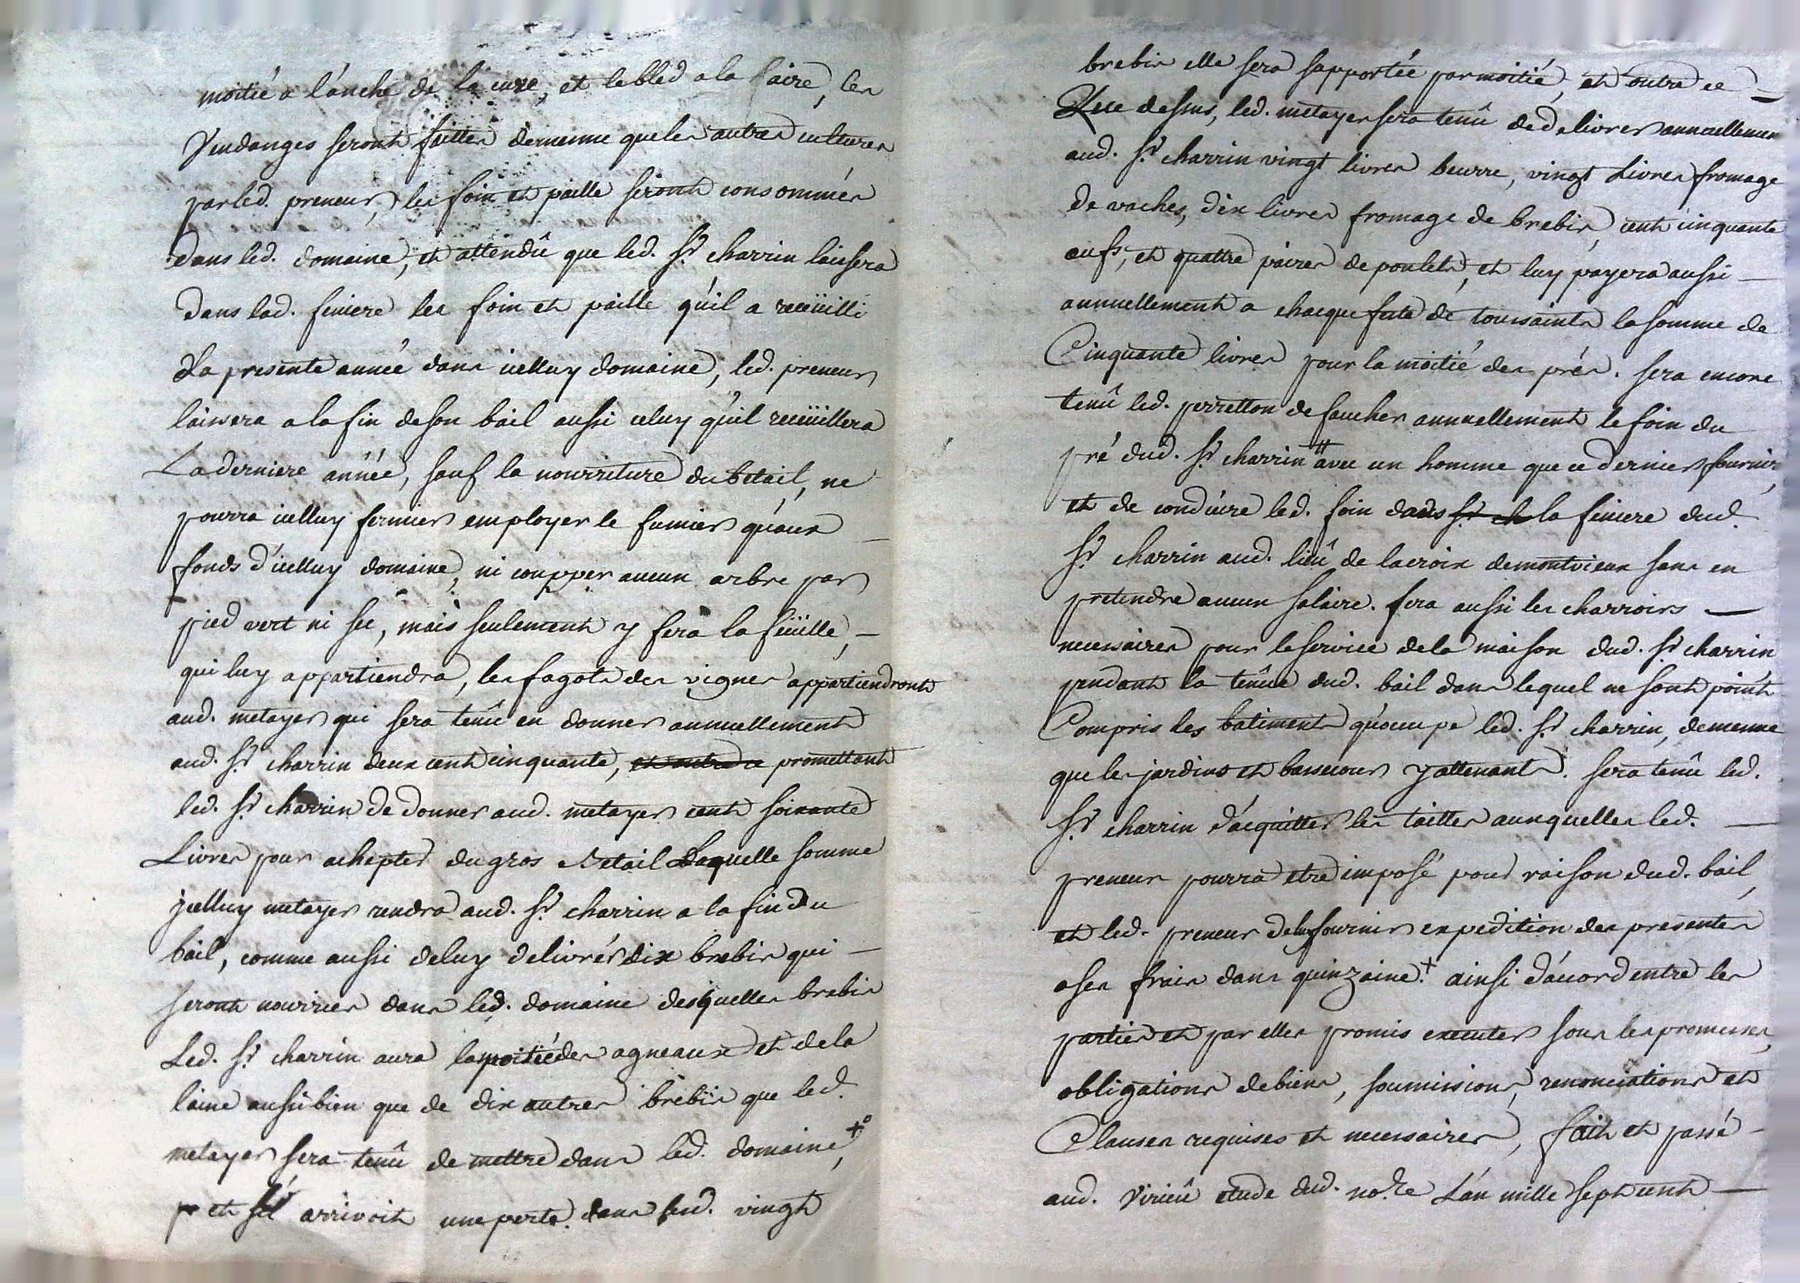 moitié a l'anche de la cuve, et le bled a la l'aire, les
Vendanges seront faittes de meme que les autres cultures
par led. preneur, les foin et paille seront consommés
dans led. domaine, et attendû que led. Sr. charrin laissera
dans lad. feniere les foin et paille qu'il a recüeilli
La presente année dans icelluy domaine, led. preneur
laissera a la fin de son bail aussi celuy qu'il recüeillera
La derniere année, sauf la nourriture du betail, ne
pourra icelluy fermier employer le fumier qu'aux
fonds d'icelluy domaine, ni coupper aucun arbre par
pied vert ni sec, mais seulement y fera la feüille,
qui luy appartiendra, les fagots des vignes appartiendront
aud. metayer qui sera tenû en donner annuellement
aud. Sr. charrin deux cent cinquante, et outre ce promettant
led. Sr. charrin de donner aud. metayer cent soixante
Livres pour achepter du gros betail Laquelle somme
icelluy metayer rendra aud. Sr. charrin a la fin du
bail, comme aussi de luy delivrer dix brebis qui
seront nourries dans led. domaine desquelles brebis
Led. Sr. charrin aura la moitié des agneaux et de la
laine aussi bien que de dix autres brebis que led.
metayer sera tenû de mettre dans led. domaine, +°
et s'il arrivoit une perte dans lesd. vingt
brebis elle sera supportée par moitié, et outre ce
Que dessus, led. metayer sera tenû de delivrer annuellement
aud. Sr. charrin vingt livres beurre, vingt Livres fromage
de vaches, dix livres fromage de brebis, cent cinquante
œufs, et quattre paires de poulets, et luy payera aussi
annuellement a chacque fete de toussaints la somme de
Cinquante livres pour la moitié des prés. sera encore
tenû led. perretton de faucher annuellement le foin du
pré dud. Sr. charrin # avec un homme que ce dernier fournir
et de conduire led. foin dans Sr. ch la feniere dud.
Sr. charrin aud. lieû de lacroix de montvieux sans en
pretendre aucun salaire. fera aussi les charrois
necessaires pour le service de la maison dud. Sr. charrin
pendant la tenüe dud. bail dans lequel ne sont point
Compris les batiments qu'occupe led. Sr. charrin, de meme
que les jardins et bassecour y attenants. sera tenû led.
Sr. charrin d'acquitter les tailles auxquelles led.
preneur pourra etre imposé pour raison dud. bail,
et led. preneur de luy fournir expedition des presentes
a ses frais dans quinzaine. + ainsi d'acord entre les
parties et par elles promis executer sous les promesses,
obligations de biens, soumissions, renonciations et
Clauses requises et necessaires, fait et passé
aud. Virieû etude dud. nore. L'an mille sept cent